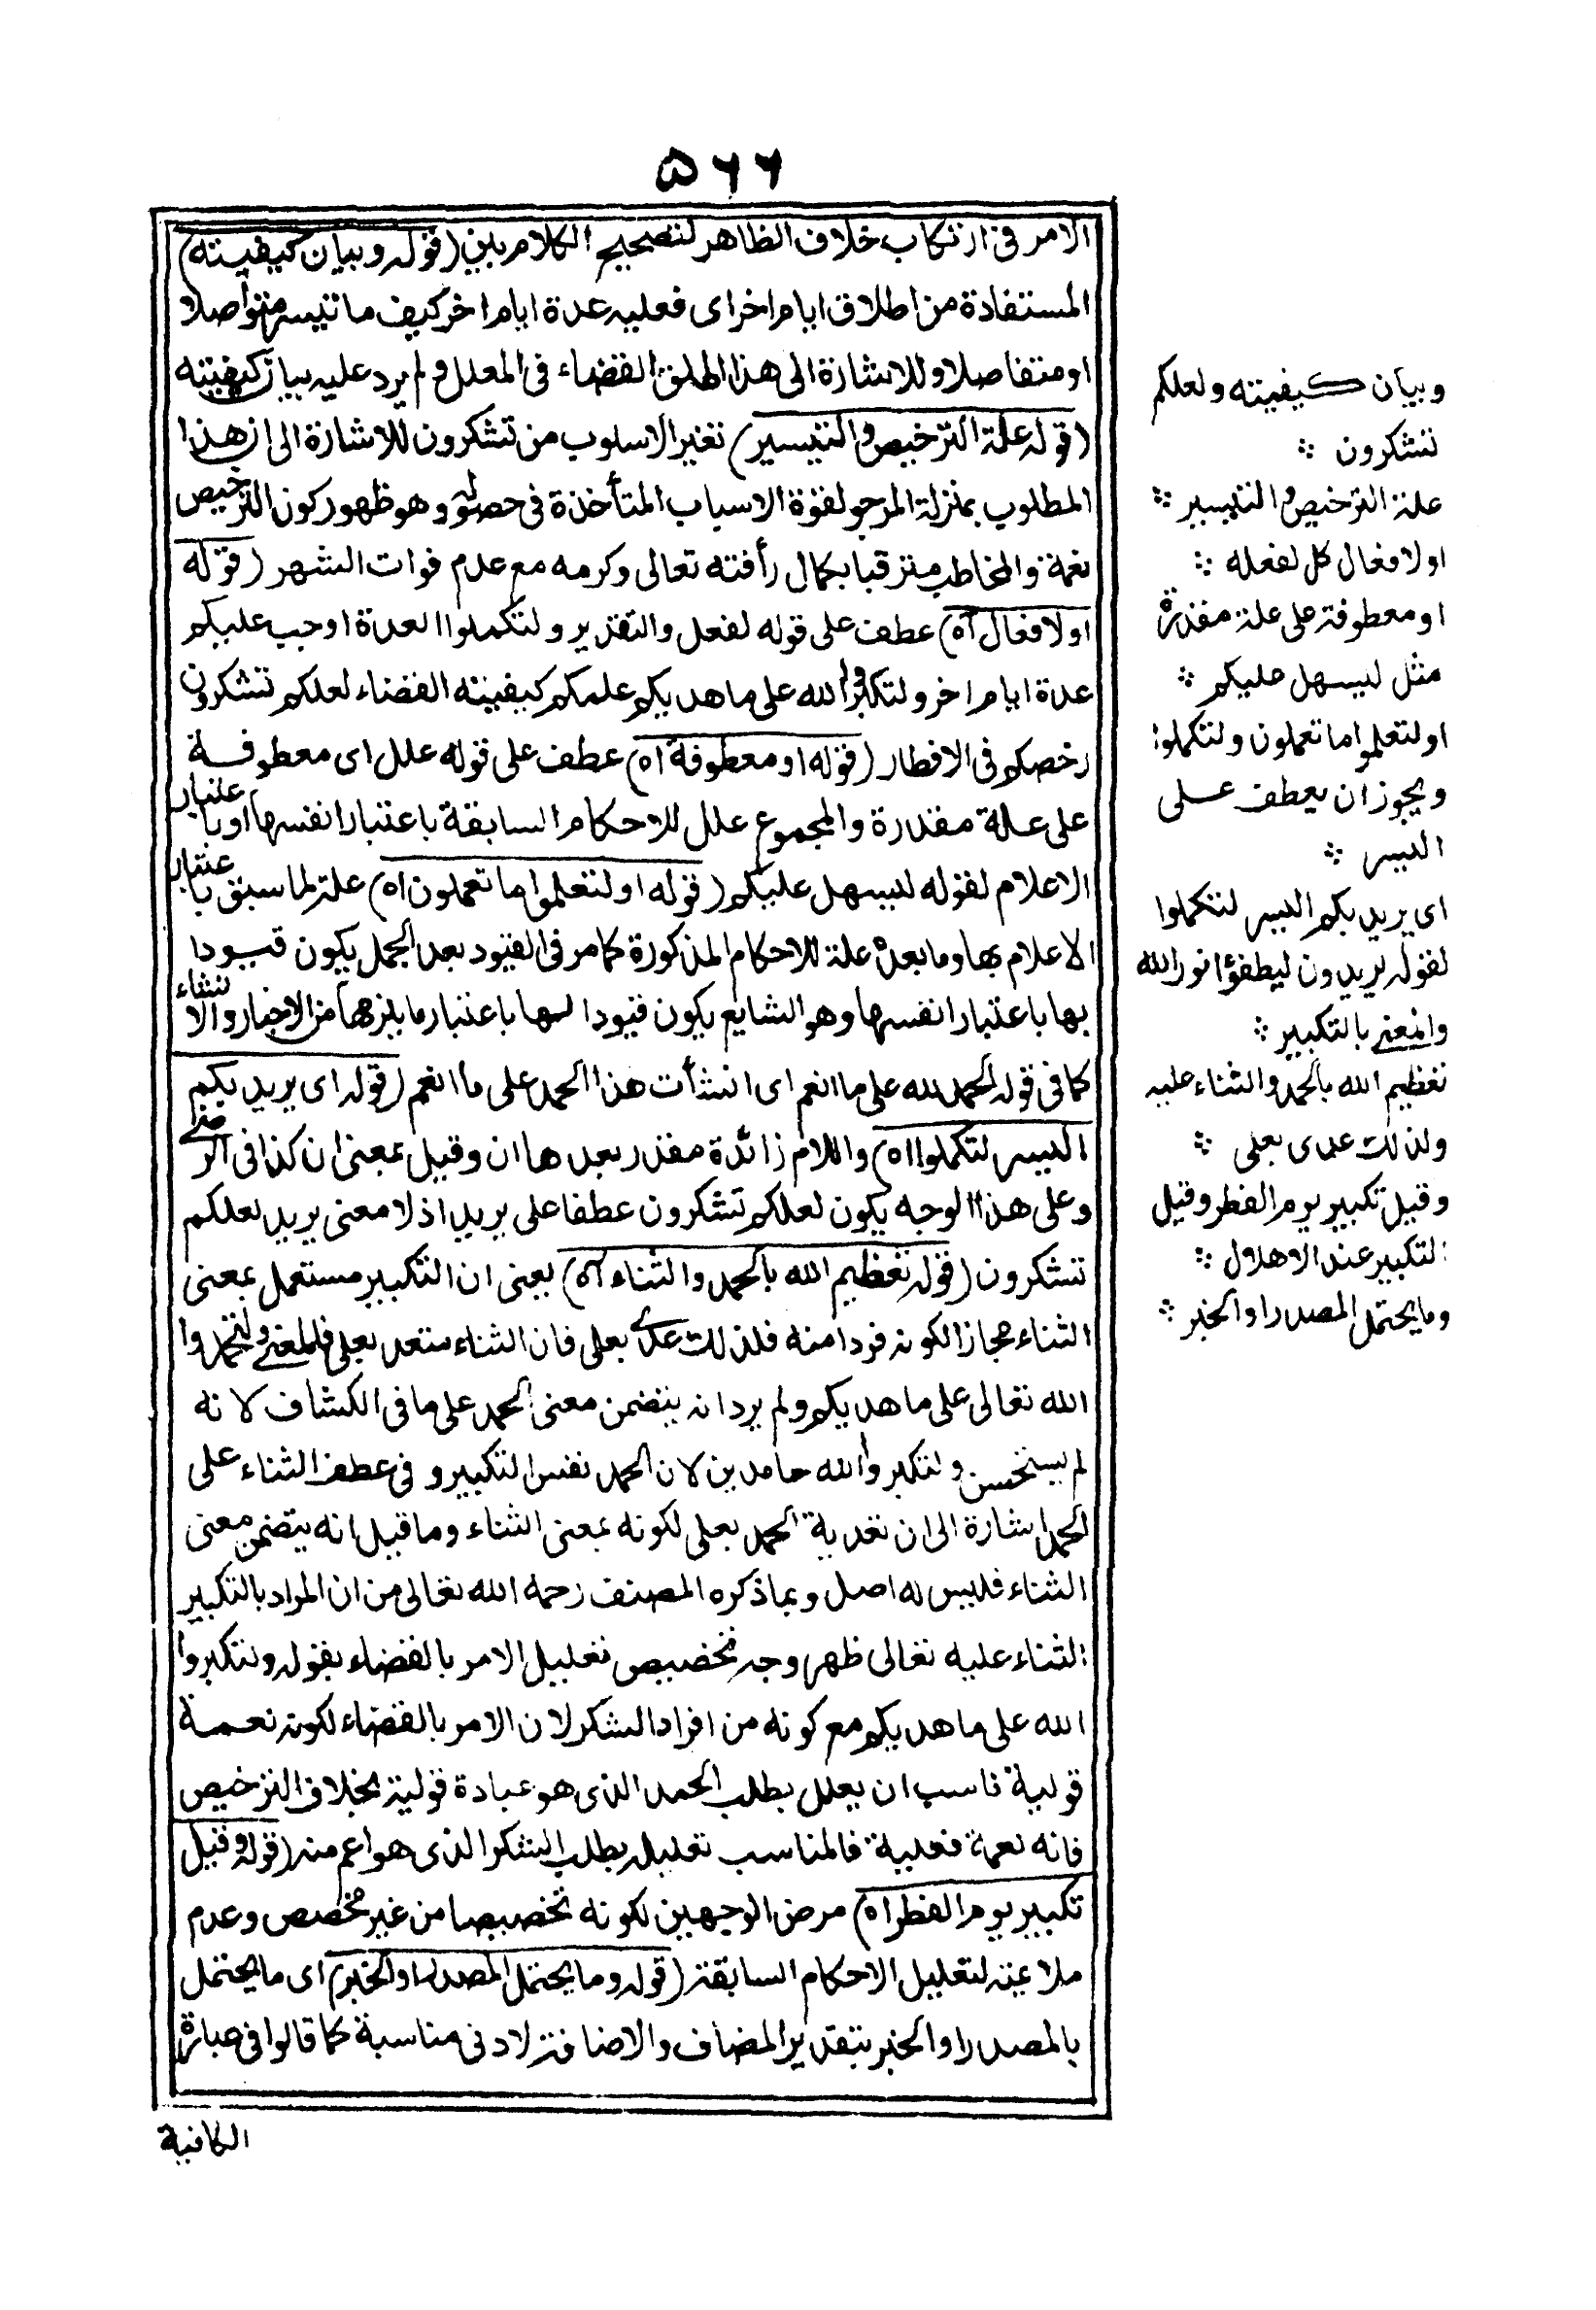 ٥٦٦
الامر فى ارتكاب خلاف الظاهر لتصحيح الكلام بين (قوله وبيان كيفيته)
المستفادة من اطلاق ايام اخر اى فعليه عدة ايام اخر كيف ما تيسر متواصلا
او متفاصلا وللاشارة الى هذا اطلق القضاء فى المعلل ولم يرد عليه بيان كيفيته
(قوله علة الترخيص والتيسير) تغير الاسلوب من تشكرون للاشارة الى ان هذا
المطلوب بمنزلة المرجو لقوة الاسباب المتأخذة فى حصوله وهو ظهور كون الترخيص
نعمة والمخاطب مترقبا بكمال رأفته تعالى وكرمه مع عدم فوات الشهر (قوله
او لافعال اه) عطف على قوله لفعل والتقدير ولتكملوا العدة اوجب عليكم
عدة ايام اخر ولتكبروا الله على ما هديكم علمكم كيفيته القضاء لعلكم تشكرون
رخصكم فى الافطار (قوله او معطوفة اه) عطف على قوله علل اى معطوفة
على علة مقدرة والمجموع علل للاحكام السابقة باعتبار انفسها او باعتبار
الاعلام لقوله ليسهل عليكم (قوله او لتعلموا ما تعملون اه) علة لما سبق باعتبار
الاعلام بها وما بعده علة للاحكام المذكورة كما مر فى القيود بعد الجمل يكون قيودا
بها باعتبار انفسها وهو الشايع يكون قيودا لها باعتبار ما يلزمها من الاخبار والانشاء
كما فى قوله الحمد لله على ما انعم اى انشأت هذا الحمد على ما انعم (قوله اى يريد بكم
اليسر لتكملوا اه) واللام زائدة مقدر بعدها ان وقيل بمعنى ان كذا فى الرضى
وعلى هذا الوجه يكون لعلكم تشكرون عطفا على يريد اذ لا معنى يريد لعلكم
تشكرون (قوله تعظيم الله بالحمد والثناء اه) يعنى ان التكبير مستعمل بمعنى
الثناء مجازا لكونه فردا منه فلذلك عدى بعلى فان الثناء يتعد بعلى فالمعنى ولتحمدوا
الله تعالى على ما هديكم ولم يرد انه يتضمن معنى الحمد على ما فى الكشاف لانه
لم يستحسن ولتكبروا الله حامدين لان الحمد نفس التكبير و فى عطف الثناء على
الحمد اشارة الى ان تعدية الحمد بعلى لكونه بمعنى الثناء وما قيل انه يتضمن معنى
الثناء فليس له اصل وبما ذكره المصنف رحمه الله تعالى من ان المراد بالتكبير
الثناء عليه تعالى ظهر وجه تخصيص تعليل الامر بالقضاء بقوله ولتكبروا
الله على ما هديكم مع كونه من افراد الشكر لان الامر بالقضاء لكونه نعمة
قولية ناسب ان يعلل بطلب الحمد الذى هو عبادة قولية بخلاف الترخيص
فانه نعمة فعلية فالمناسب تعليله بطلب الشكر الذى هو اعم منه (قوله وقيل
تكبير يوم الفطر اه) مرض الوجهين لكونه تخصيصا من غير مخصص وعدم
ملايمته لتعليل الاحكام السابقة (قوله وما يحتمل المصدر او الخبر) اى ما يحتمل
بالمصدر او الخبر بتقدير المضاف والاضافة لادنى مناسبة كما قالوا فى عبارة
الكافية
وبيان كيفيته ولعلكم
تشكرون
علة الترخيص والتيسير
او لافعال كل لفعله
او معطوفة على علة مقدرة
مثل ليسهل عليكم
او لتعلموا ما تعملون ولتكملوا
ويجوز ان يعطف على
اليسر
اى يريد بكم اليسر لتكملوا
لقوله يريدون ليطفؤا نور الله
والمعنى بالتكبير
تعظيم الله بالحمد والثناء عليه
ولذلك عدى بعلى
وقيل تكبير يوم الفطر وقيل
التكبير عند الاهلال
وما يحتمل المصدر او الخبر